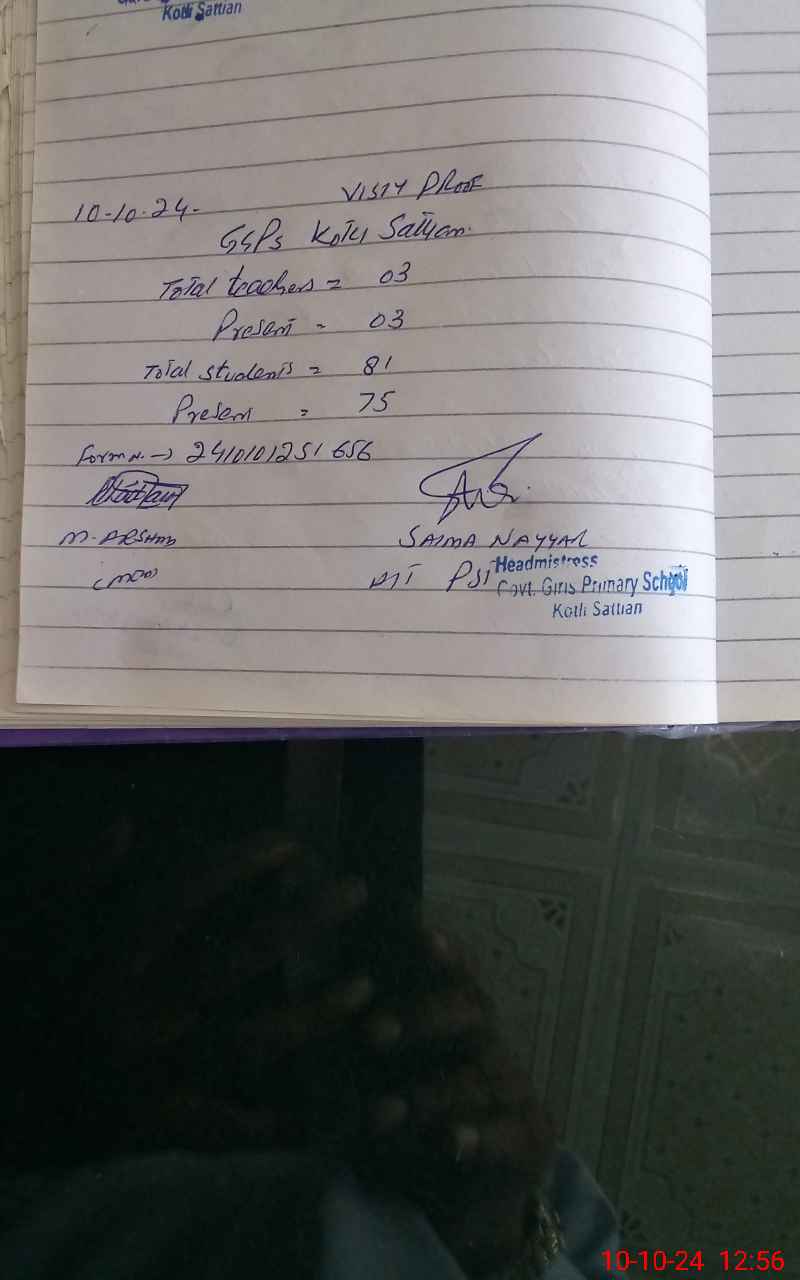 Kotli Sattian
10-10-24.
VISIT PROOF
GGPS Kotli Sattian.
Total teachers = 03
Present = 03
Total students = 81
Present = 75
Form N. → 2410101251656
M. ARSHAD
SAIMA NAYYAR
PST
Headmistress
Govt. Girls Primary School
Kotli Sattian
10-10-24 12:56